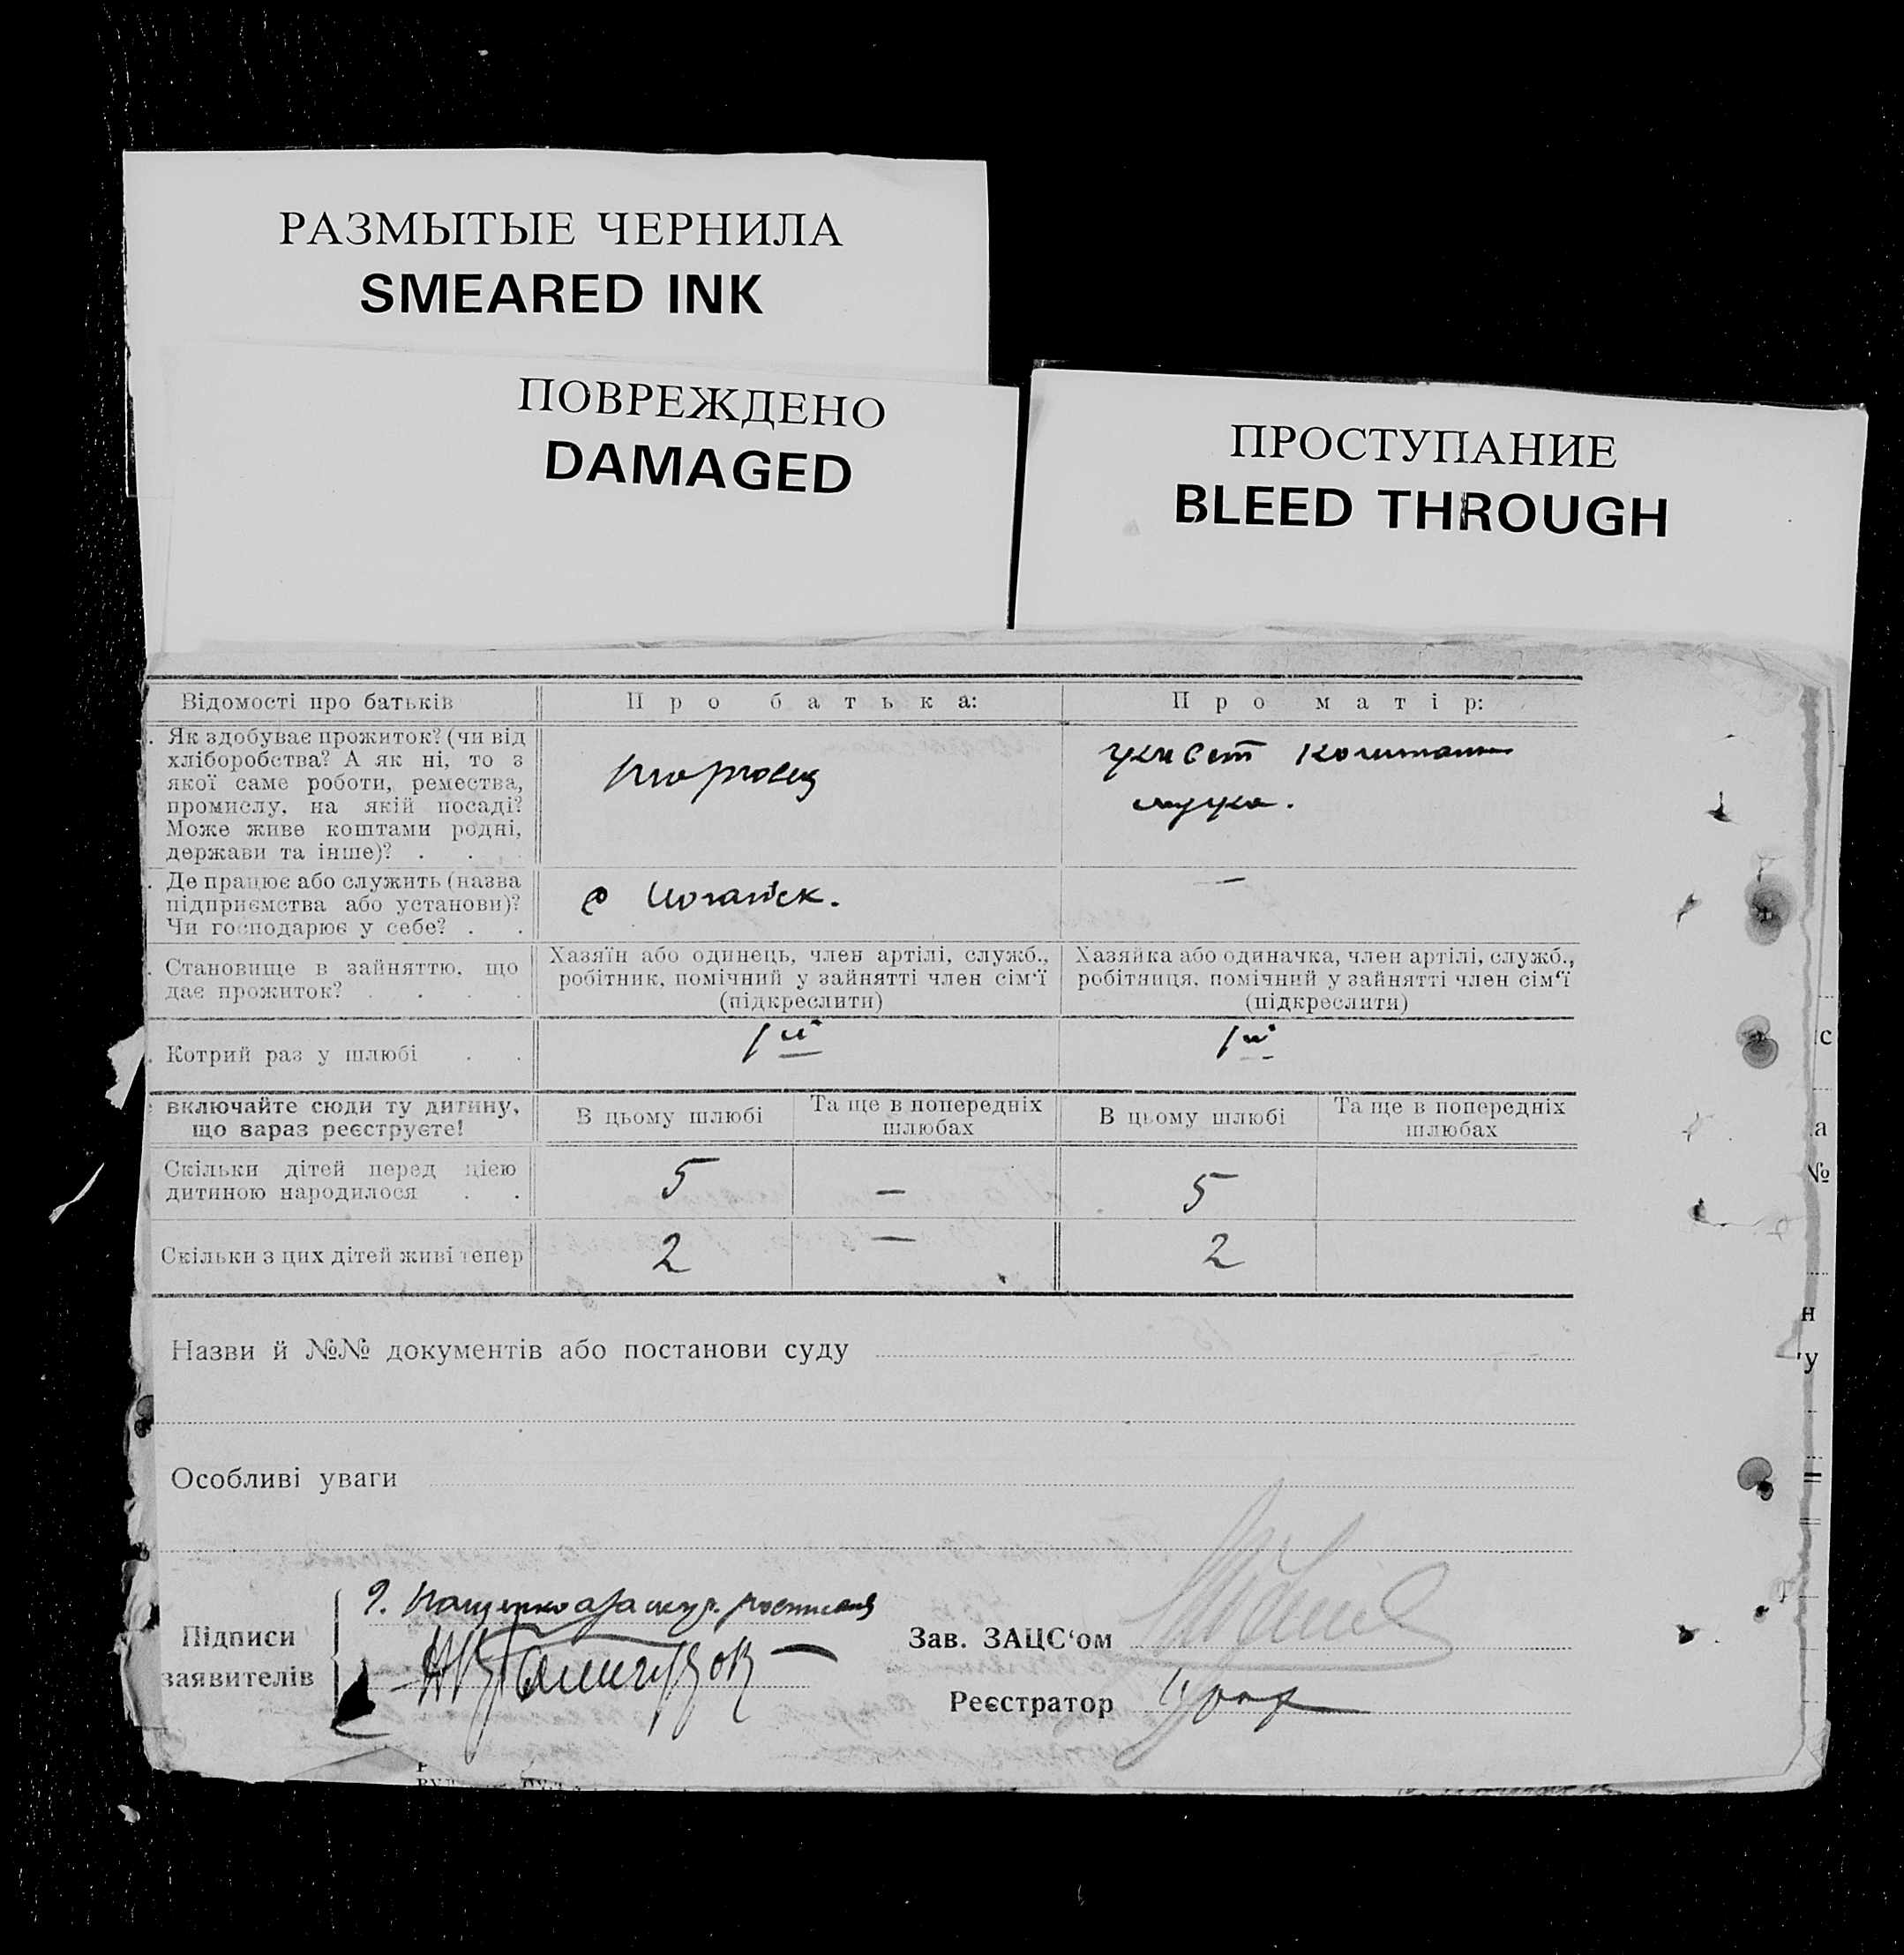 РАЗМЫТЫЕ ЧЕРНИЛА
SMEARED INK
ПОВРЕЖДЕНО
DAMAGED
ПРОСТУПАНИЕ
BLEED THROUGH
Відомості про батьків
Про батька:
Про матір:
. Як здобуває прожиток? (чи від
хліборобства? А як ні, то з
якої саме роботи, ремества,
промислу, на якій посаді?
Може живе коштами родні,
держави та інше)? . .
торговец
живет
мужа.
. Де працює або служить (назва
підприємства або установи)?
Чи господарює у себе? . .
—
. Становище в зайняттю, що
дає прожиток? . . . .
Хазяїн або одинець, член артілі, служб.,
робітник, помічний у зайнятті член сім'ї
(підкреслити)
Хазяйка або одиначка, член артілі, служб.,
робітниця, помічний у зайнятті член сім'ї
(підкреслити)
. Котрий раз у шлюбі . .
1й
1й
включайте сюди ту дитину,
що зараз реєструєте!
В цьому шлюбі
Та ще в попередніх
шлюбах
В цьому шлюбі
Та ще в попередніх
шлюбах
Скільки дітей перед цією
дитиною народилося . .
5
—
5
Скільки з цих дітей живі тепер
2
—
2
Назви й №№ документів або постанови суду
Особливі уваги
Підписи
заявителів
Зав. ЗАЦС‘ом
Реєстратор
с
а
№
н
у